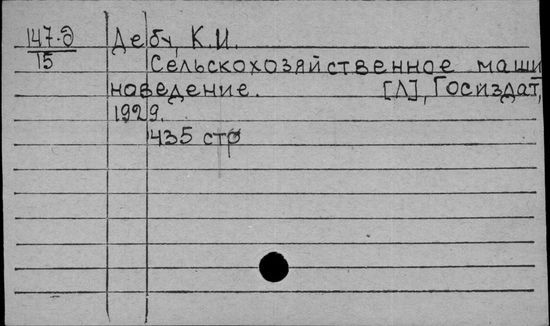 147.Д
15
Дебу, К.И.
Сельскохозяйственное маши
новедение. [Л], Госиздат,
1929.
435 стр